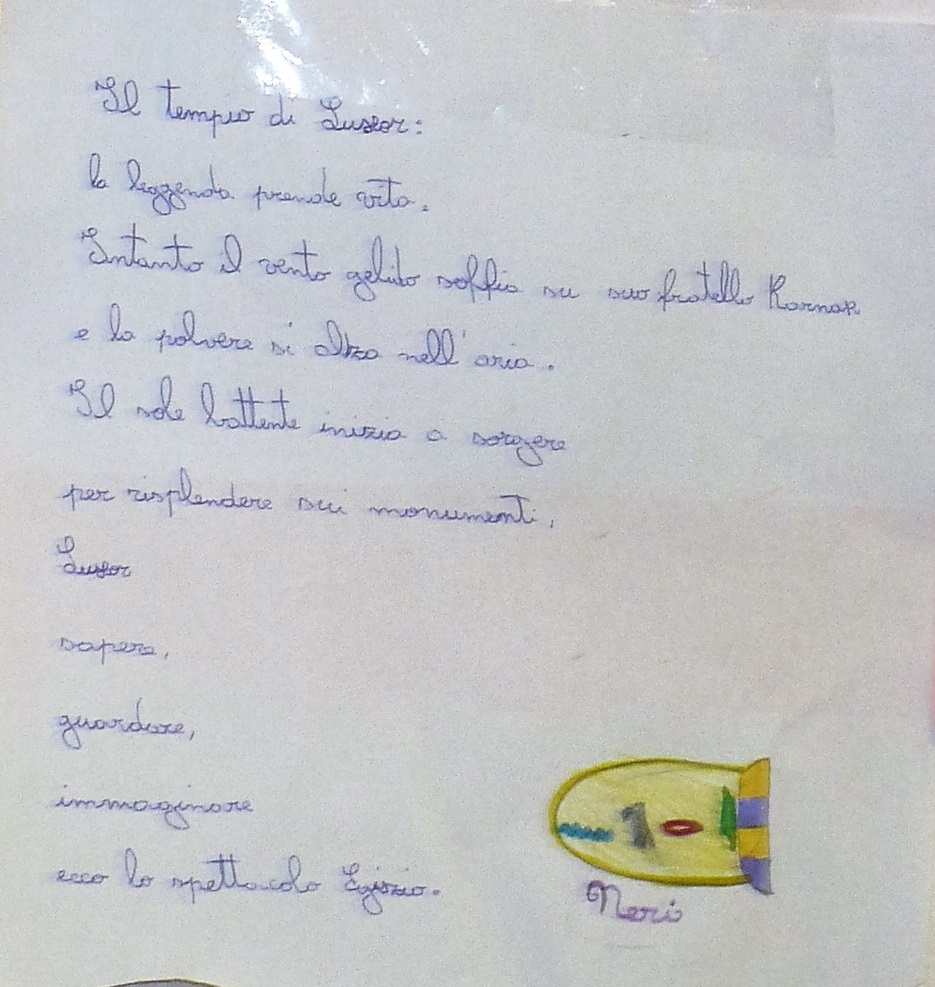 Il tempio di Luxor:
la leggenda prende vita.
Intanto il vento gelido soffia su suo fratello Karnak
e la polvere si alza nell'aria.
Il sole battente inizia a sorgere
per risplendere sui monumenti,
Luxor
sapere,
guardare,
immaginare
ecco lo spettacolo Egizio.
Neri